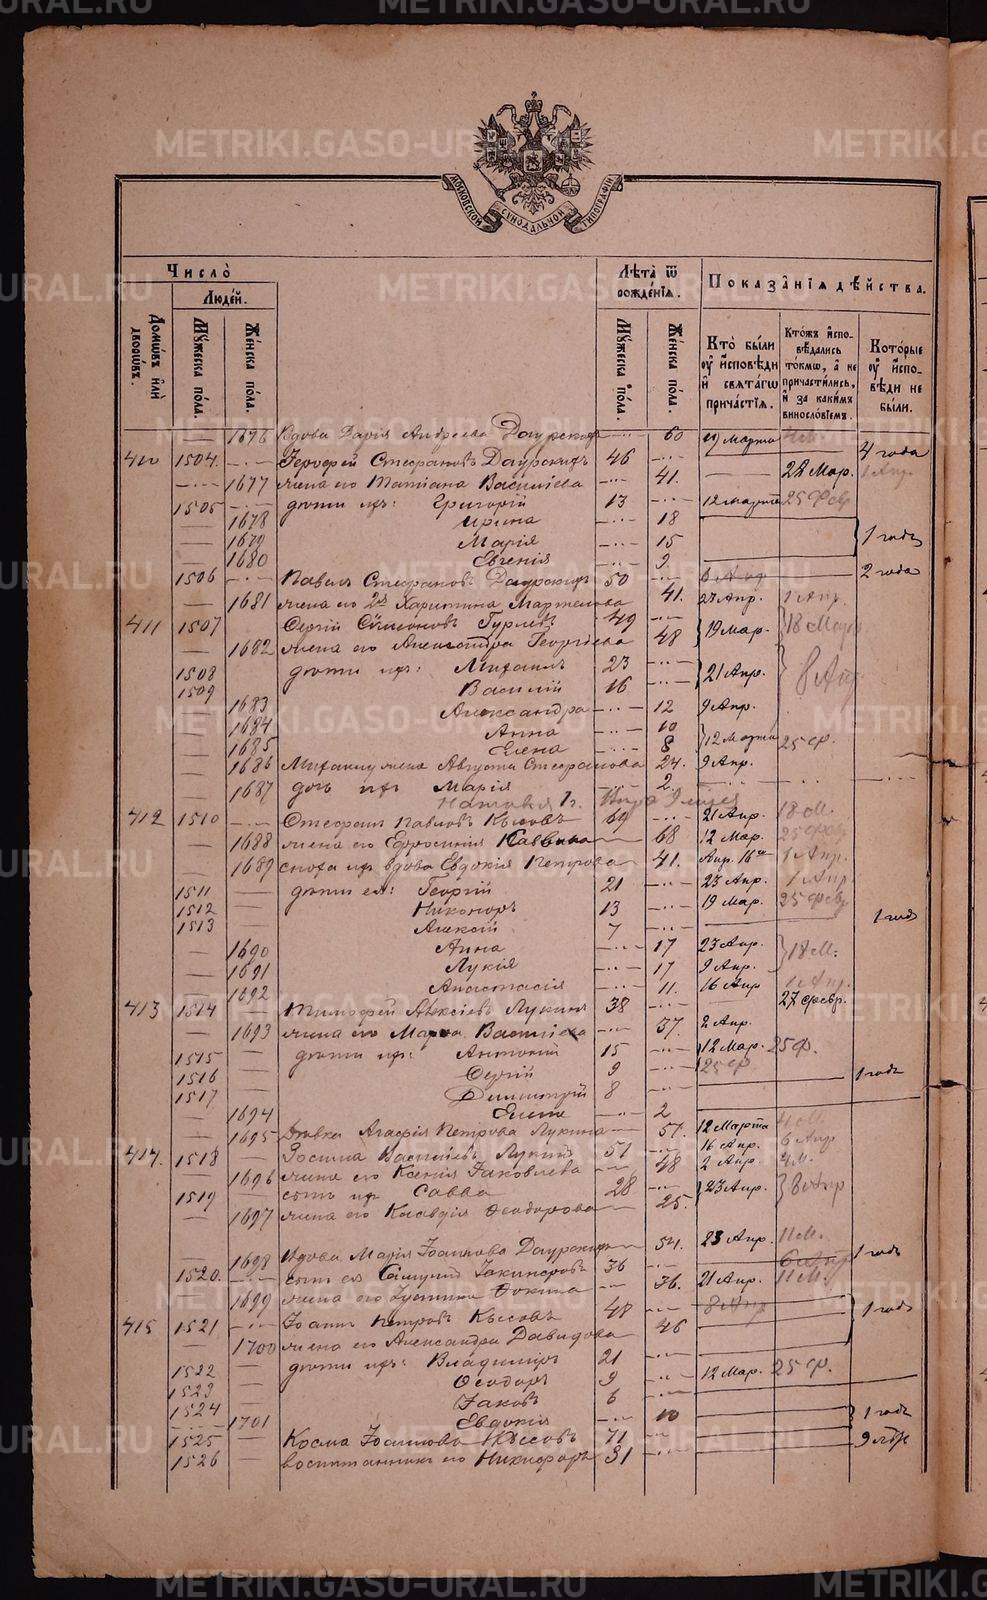 METRIKI.GASO-URAL.RU
МОСКОВСКОЙ СУНОДАЛЬНОЙ ТИПОГРАФІИ
Число̀
Людей.
Домѡвъ илѝ дворѡвъ.
Мꙋжеска пола.
Женска пола.
Лѣта ѿ рожденїѧ.
Мꙋжеска пола.
Женска пола.
Показанїѧ дѣйства.
Кто были ᲂу исповѣди и свѧтагѡ причастїѧ.
Ктожъ исповѣдались токмѡ, а не причастились, и за какимъ винословїемъ.
Которые ᲂу исповѣди не были.
— 1676 Вдова Дарія Андреева 60 19 Марта 4 года
410 1504. Стефановъ 46 28 Мар. 1 Апр.
1677 жена его Татіана Васильева 41.
1505 дѣти ихъ: Григорій 13 12 марта 25 Февр
1678 Ирина 18
1679 Марія 15 1 годъ
1680 Евгенія 9
1506 Павелъ Стефановъ 50 6 Апр 2 года
1681 жена его 2я Харитина 41. 27 Апр. 1 Апр.
411 1507 Сергій Гурьевъ 49 19 Мар. 18 Мар
1682 жена его Александра Георгіева 48
1508 дѣти ихъ: Михаилъ 23 21 Апр. 8 Апр
1509 Василій 16
1683 Александра 12 9 Апр.
1684 Анна 10 12 Марта 25 Ф.
1685 Елена 8
1686 Михаилу жена Августа Стефанова 24. 9 Апр.
1687 дочь ихъ Марія 2.
412 1510 Стефанъ Павловъ 69 21 Апр. 18 М.
1688 жена его Евфросинія Саввина 68 12 Мар. 25 Февр
1689 сноха ихъ вдова Евдокія Петрова 41. Апр. 16 1 Апр.
1511 дѣти ея: Георгій 21 23 Апр. 1 Апр.
1512 Никоноръ 13 19 Мар. 25 Февр.
1513 Алексій 7 1 годъ
1690 Анна 17 23 Апр. 18 М.
1691 Лукія 17 9 Апр.
1692 Анастасія 11. 16 Апр 1 Апр.
413 1514 Тимофей Алексіевъ Лукинъ 38 27 февр.
1693 жена его Марѳа Васильева 37. 2 Апр.
1515 дѣти ихъ: Антоній 15 12 Мар. 25 Ф.
1516 Сергій 9 25 Ф 1 годъ
1517 Димитрій 8
1694 Елена 2
1695 Дѣвка Агафія Петрова Лукина 51. 12 Марта 4 М.
414. 1518 Іоаннъ Васильевъ Лукинъ 51 16 Апр. 6 Апр
1696 жена его Ксенія Іаковлева 48 2 Апр. 4 М.
1519 сынъ ихъ Савва 28 23 Апр. 8 Апр
1697 жена его Клавдія Ѳеодорова 25.
1698 Вдова Марія Іоаннова 54. 23 Апр. 11 М. 1 годъ
1520. сынъ ея 36 6 Апр
1699 жена его Іустина Фокина 36. 21 Апр. 11 М.
415 1521 Іоаннъ Петровъ 48 8 Апр 1 годъ
1700 жена его Александра Давидова 46
1522 дѣти ихъ: Владиміръ 21 12 Мар. 25 Ф.
1523 Ѳеодоръ 9
1524 Іаковъ 6
1701 Евдокія 10 1 годъ
1525 Косма Іоанновъ 71
1526 воспитанникъ его Никифоръ 31